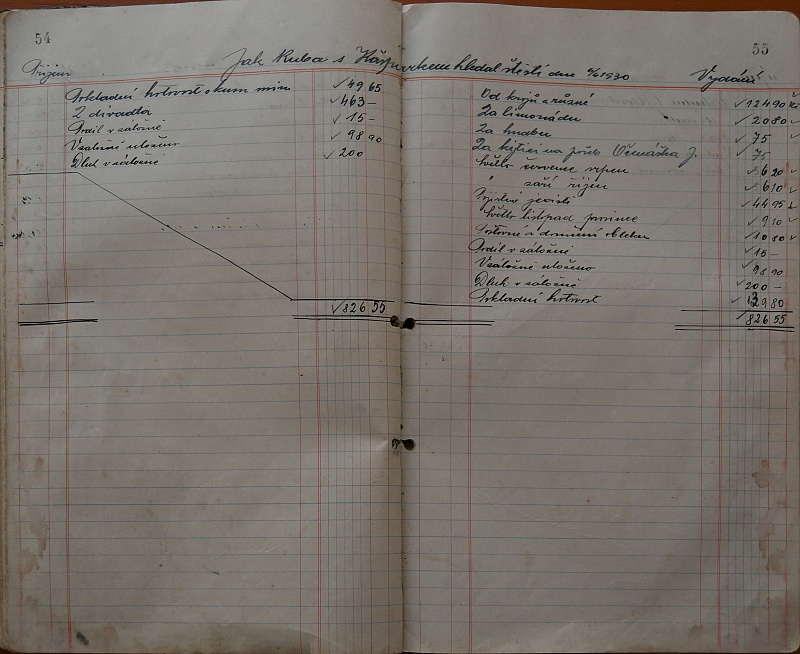 54
55
Jak Kuba s Kašpárkem hledal štěstí dne 6/4 1930
Příjem
Vydání
Pokladní hotovost z kum min 49 65
Z divadla 463 –
Podíl v záložně 15 –
V záložně uloženo 98 90
Dluh v záložně 200
826 55
Od krojů a různé 124 90 Kč
Za limonádu 20 80
Za hudbu 75
Za kytici na pohř. J. 75
Světlo červenec srpen 6 20
" září říjen 6 10
44 95
Světlo listopad prosinec 9 10
Poštovné a 10 80
Podíl v záložně 15 –
V záložně uloženo 98 90
Dluh v záložně 200 –
Pokladní hotovost 139 80
826 55